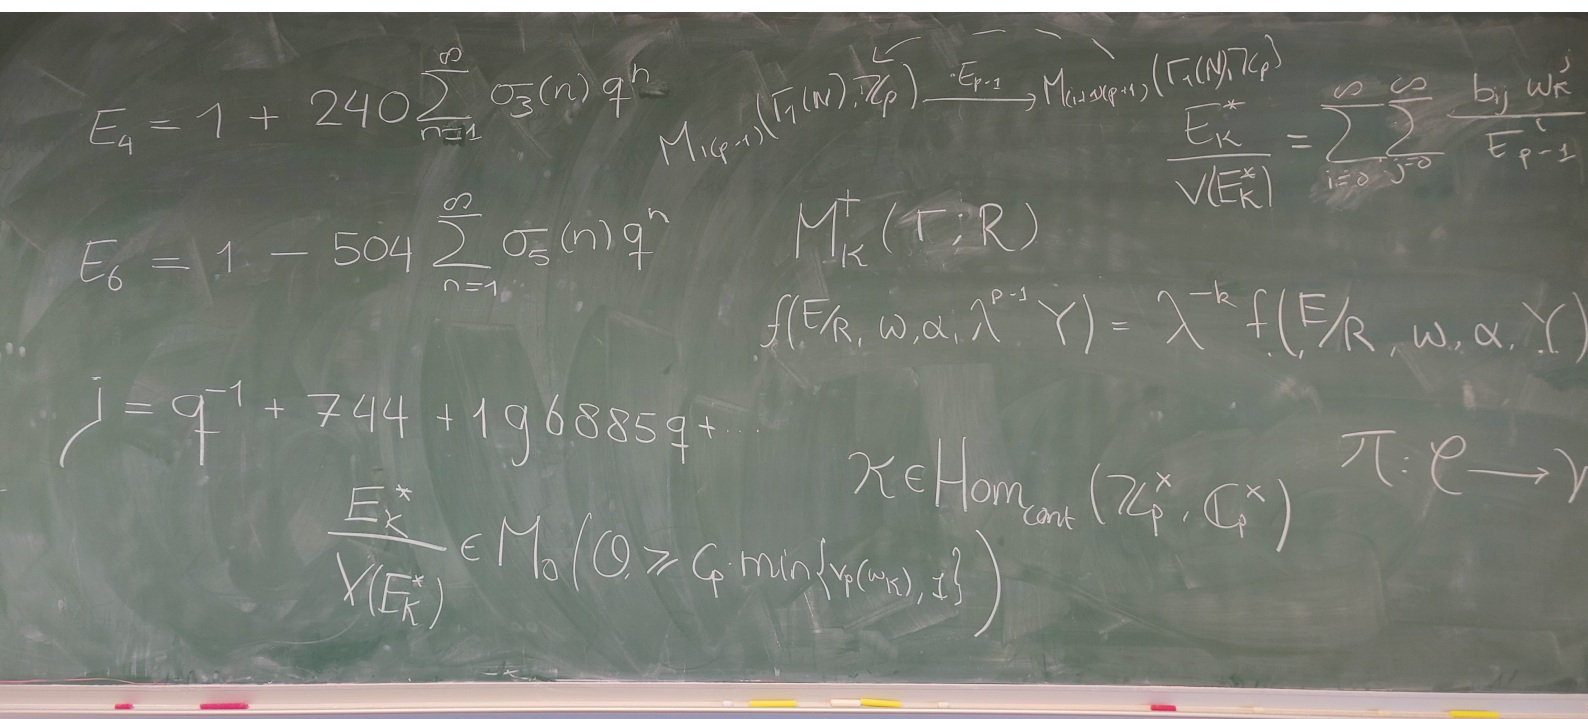 E₄ = 1 + 240 ∑_{n=1}^{∞} σ₃(n) qⁿ
M_{i(p-1)}(Γ₁(N), ℤ_p) —·E_{p-1}→ M_{(i+1)(p-1)}(Γ₁(N), ℤ_p)
E_κ^* / V(E_κ^*) = ∑_{i=0}^{∞} ∑_{j=0}^{∞} b_{ij} w_κ^j / E_{p-1}^i
E₆ = 1 − 504 ∑_{n=1}^{∞} σ₅(n) qⁿ
M_κ^+(Γ; R)
f(E/R, ω, α, λ^{p-1} Y) = λ^{-k} f(E/R, ω, α, Y)
j = q^{-1} + 744 + 196885q + ...
κ ∈ Hom_{cont}(ℤ_p^×, ℂ_p^×)
π: e ⟶
E_κ^* / V(E_κ^*) ∈ M₀(O, ≥ c_p · min{v_p(w_κ), 1})